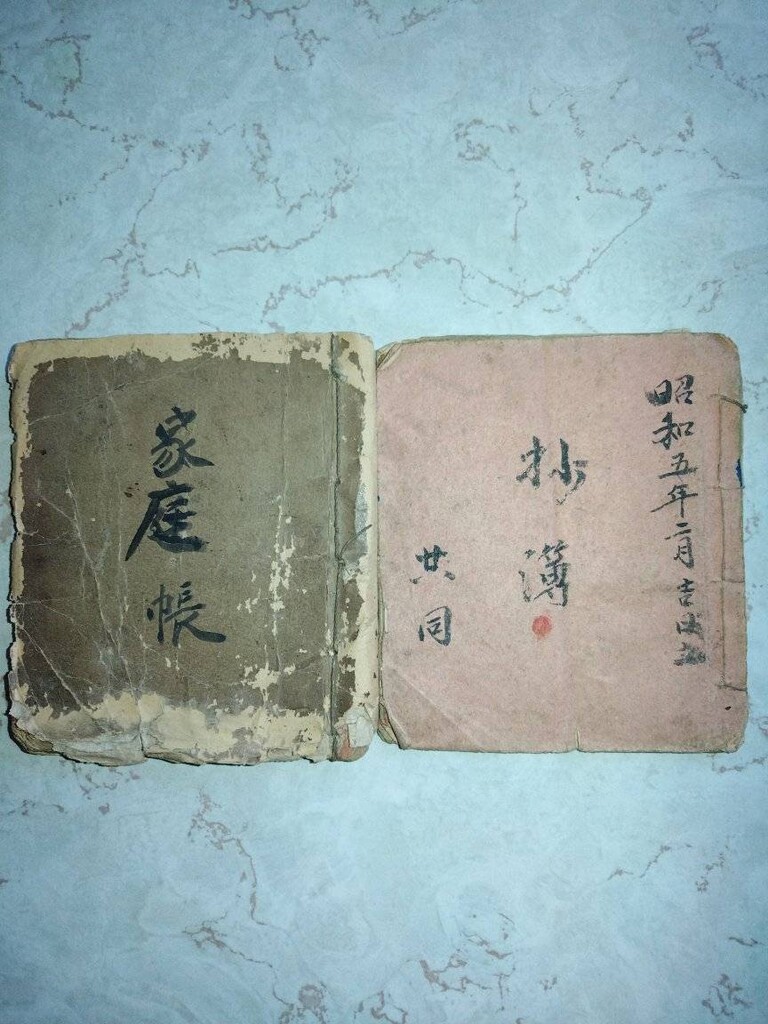 昭和五年二月吉日立
抄簿
共同
家庭帳